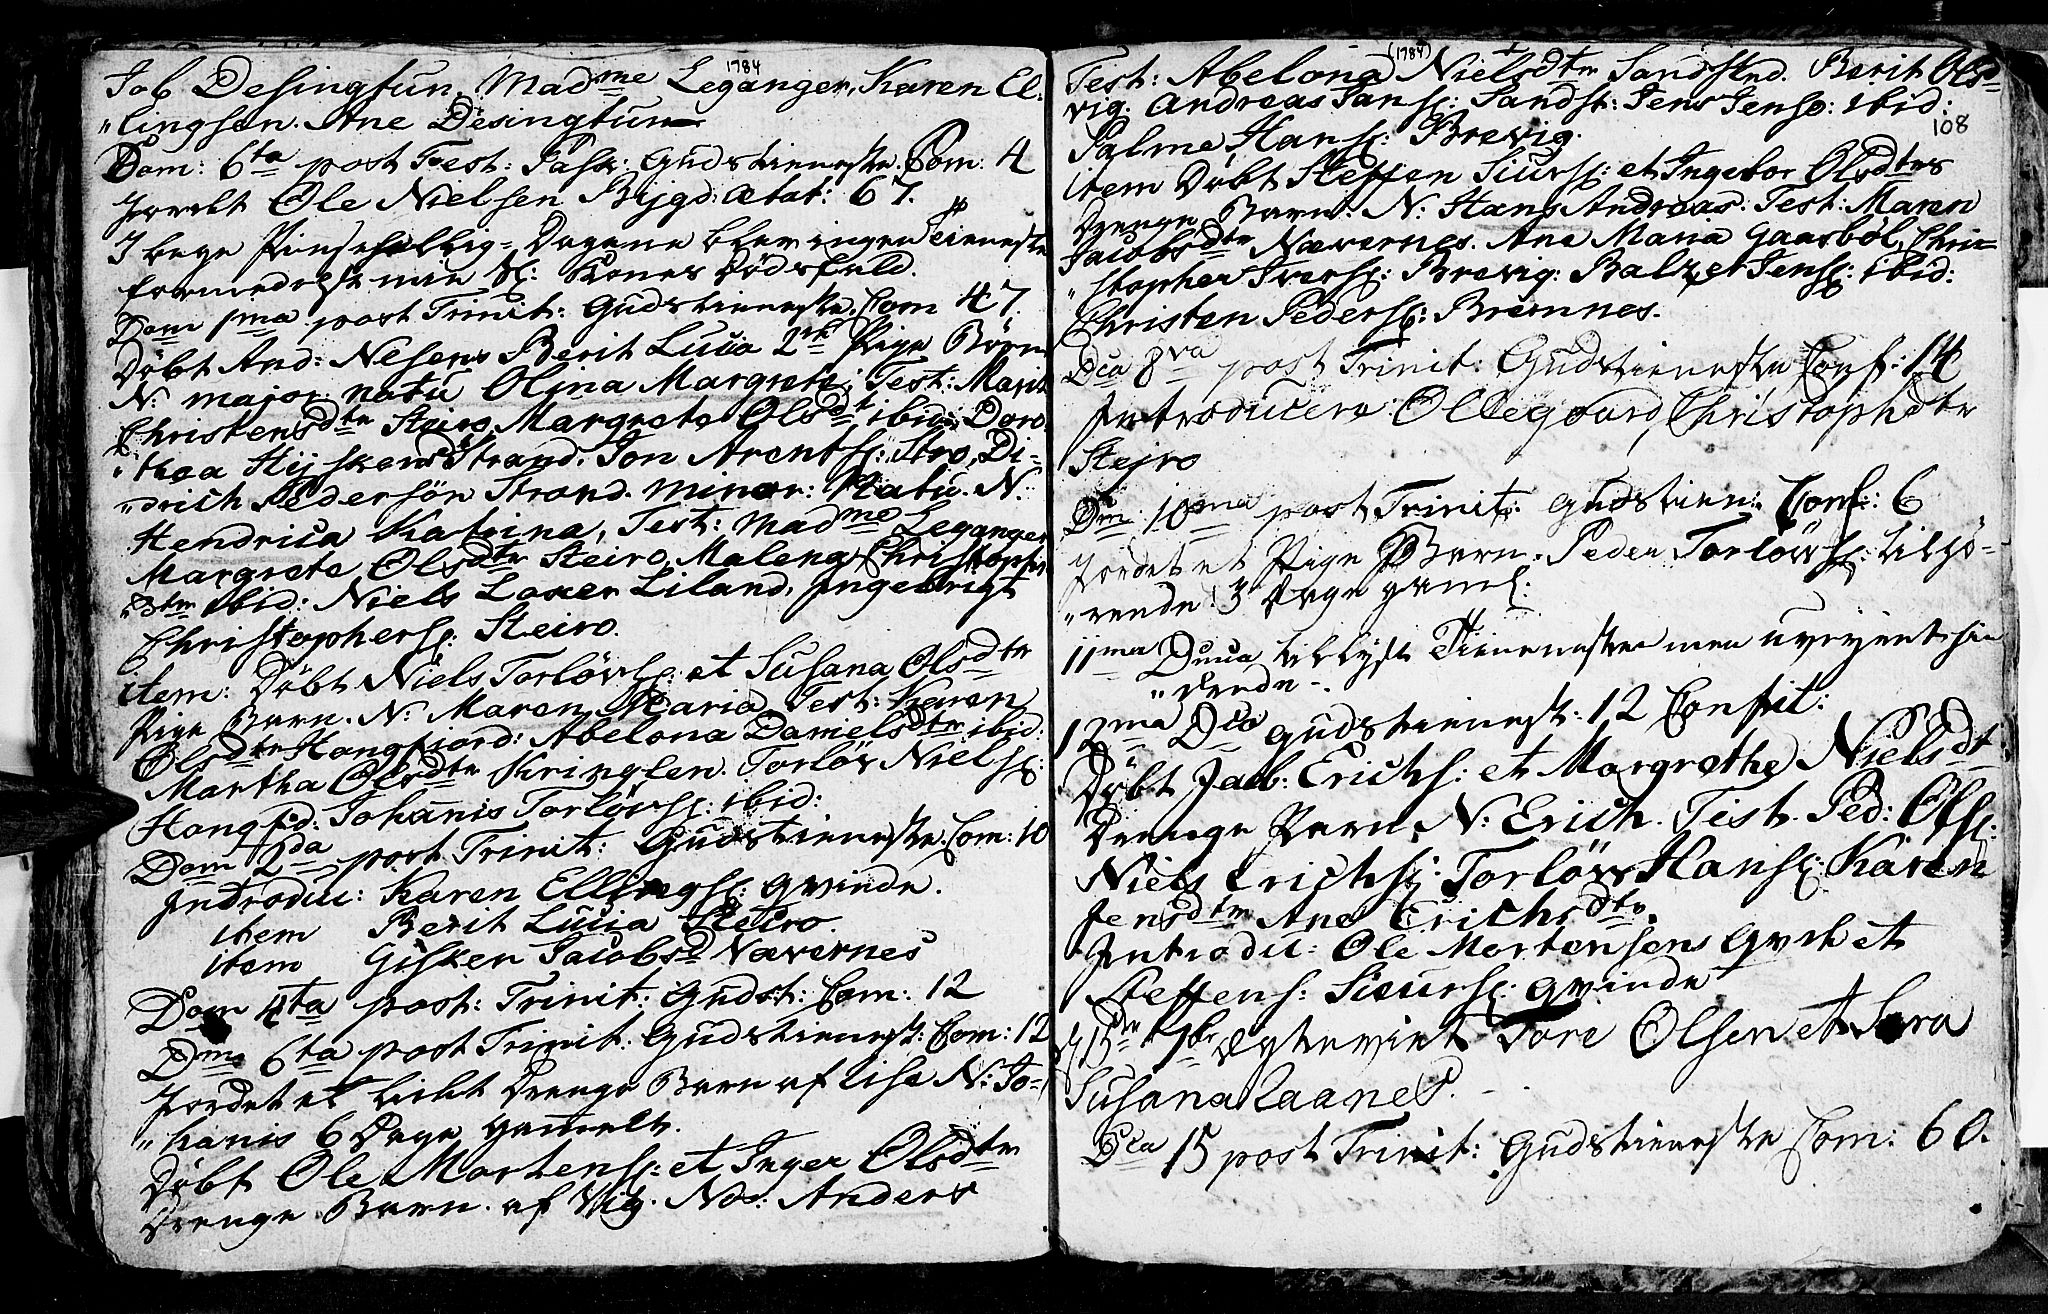 1784
Job Desingtun, Madme Leganger, Karen El-
"lingsen. Ane Desingtun
Dom: 6ta post Fest: Pask: Gudstieneste Com: 4
Jordet Ole Nielsen Bygd: Ætat: 67.
I bege Pinsehellig-Dagene blev ingen tieneste
formedelst min Sl: Kones Dödsfald.
Dom 1ma post Trinit: Gudstieneste Com 47.
Döbt And: Nesens Berit Lucia 2de Pige Börn
N. major natu Olina Margrete; Test: Marit
Christensdtr Steiro, Margrete Olsdt ibid: Doro-
"thea Hysken Strand. Jon Arentss: Stro, Di-
"drich Pedersön Strand. minor: Natu. N.
Hendrica Katrina, Test: Madme Leganger
Margrete Olsdtr Steiro, Malena Christopher
Dtr ibid: Niels Loxer Liland, Ingebrigt
Christophers: Steiro.
item: Döbt Niels Torlövs: et Susana Olsdtr
Pige Barn. N: Maren Maria, Test: Karen
Olsdtr Hongfiord: Abelona Danielsdtr ibid:
Martha Olsdtr Kringlen. Torlöv Niels:
Hongfd: Johanis Torlövs: ibid:
Dom 2da post Trinit: Gudstieneste Com: 10
Introdu: Karen Ellings: Qvinde.
item Berit Lucia Steiro.
item Gisken Jacobsd Nævernes
Dom 4ta post: Trinit: Gudst: Com: 12
Dma 6ta post Trinit: Gudstienest: Com: 12
Jordet et lidet Drenge Barn af lise N: Jo-
"hanis 6 Dage gammelt.
Döbt Ole Mortens: et Inger Olsdtr
Drenge Barn. af Vig. No: Anders
(1784)
108
Test: Abelona Nielsdtr Sandstnd. Berit Olsd-
vig: Andreas Jans: Sandst: Jens Jens: ibid:
Palme Hans: Brevig.
item Döbt Steffen Siurs: et Ingebor Olsdtrs
Drenge Barn: N: Hans Andreas. Test: Maren
Jacobsdtr Nævernes. Ane Mana Gaasböl, Chri-
"stopher Ivers: Brevig: Balzer Jens: ibid:
Christen Peders: Bremnes.
Dca 8va post Trinit: Gudstieneste Conf: 14
Introducere: Ollegaard Christophdtr
Steiro
Dm: 10ma post Trinit: Gudstien: Conf: 6
Jordet et Pige Barn. Peder Torlövs: tilhö-
"rende 3 Dage gaml:
11ma Dnica tillyst Tienesten men uveyent hin
"drede -
12ma Dca Gudstienest: 12 Confit:
Döbt Jacb: Erichs: et Margrethe Nielsdt:
Drenge Barn, N: Erich. Test. Ped: Ols:
Niels Erichs: Torlöv Hans: Karen
Jensdtr Ane Erichsdtr.
Introdu: Ole Mortensens Qvi: et
Steffens: Siurs: Qvinde
d 15de 7br ægteviet Tore Olsen et Sara
Susana Raanes.
Dca 15 post Trinit: Gudstieneste Com: 60.